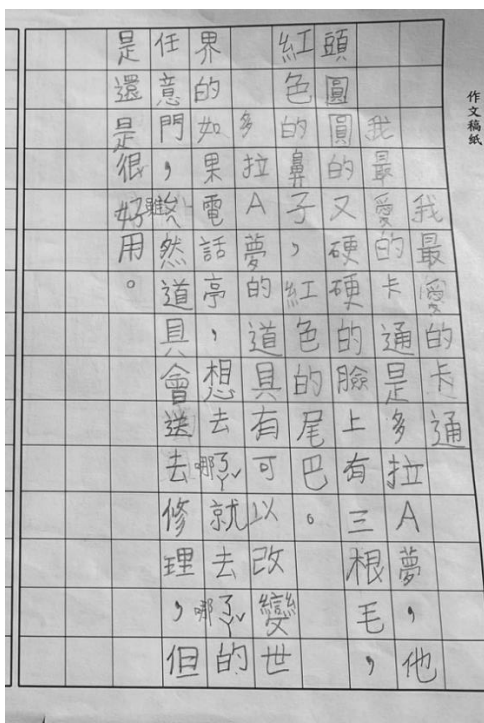 作文稿紙
我最愛的卡通
我最愛的卡通是多拉A夢,他
頭圓圓的又硬硬的臉上有三根毛,
紅色的鼻子,紅色的尾巴。
多拉A夢的道具有可以改變世
界的如果電話亭,想去哪ㄋㄚˇ就去哪ㄋㄚˇ的
任意門,雖然道具會送去修理,但
是還是很好用。